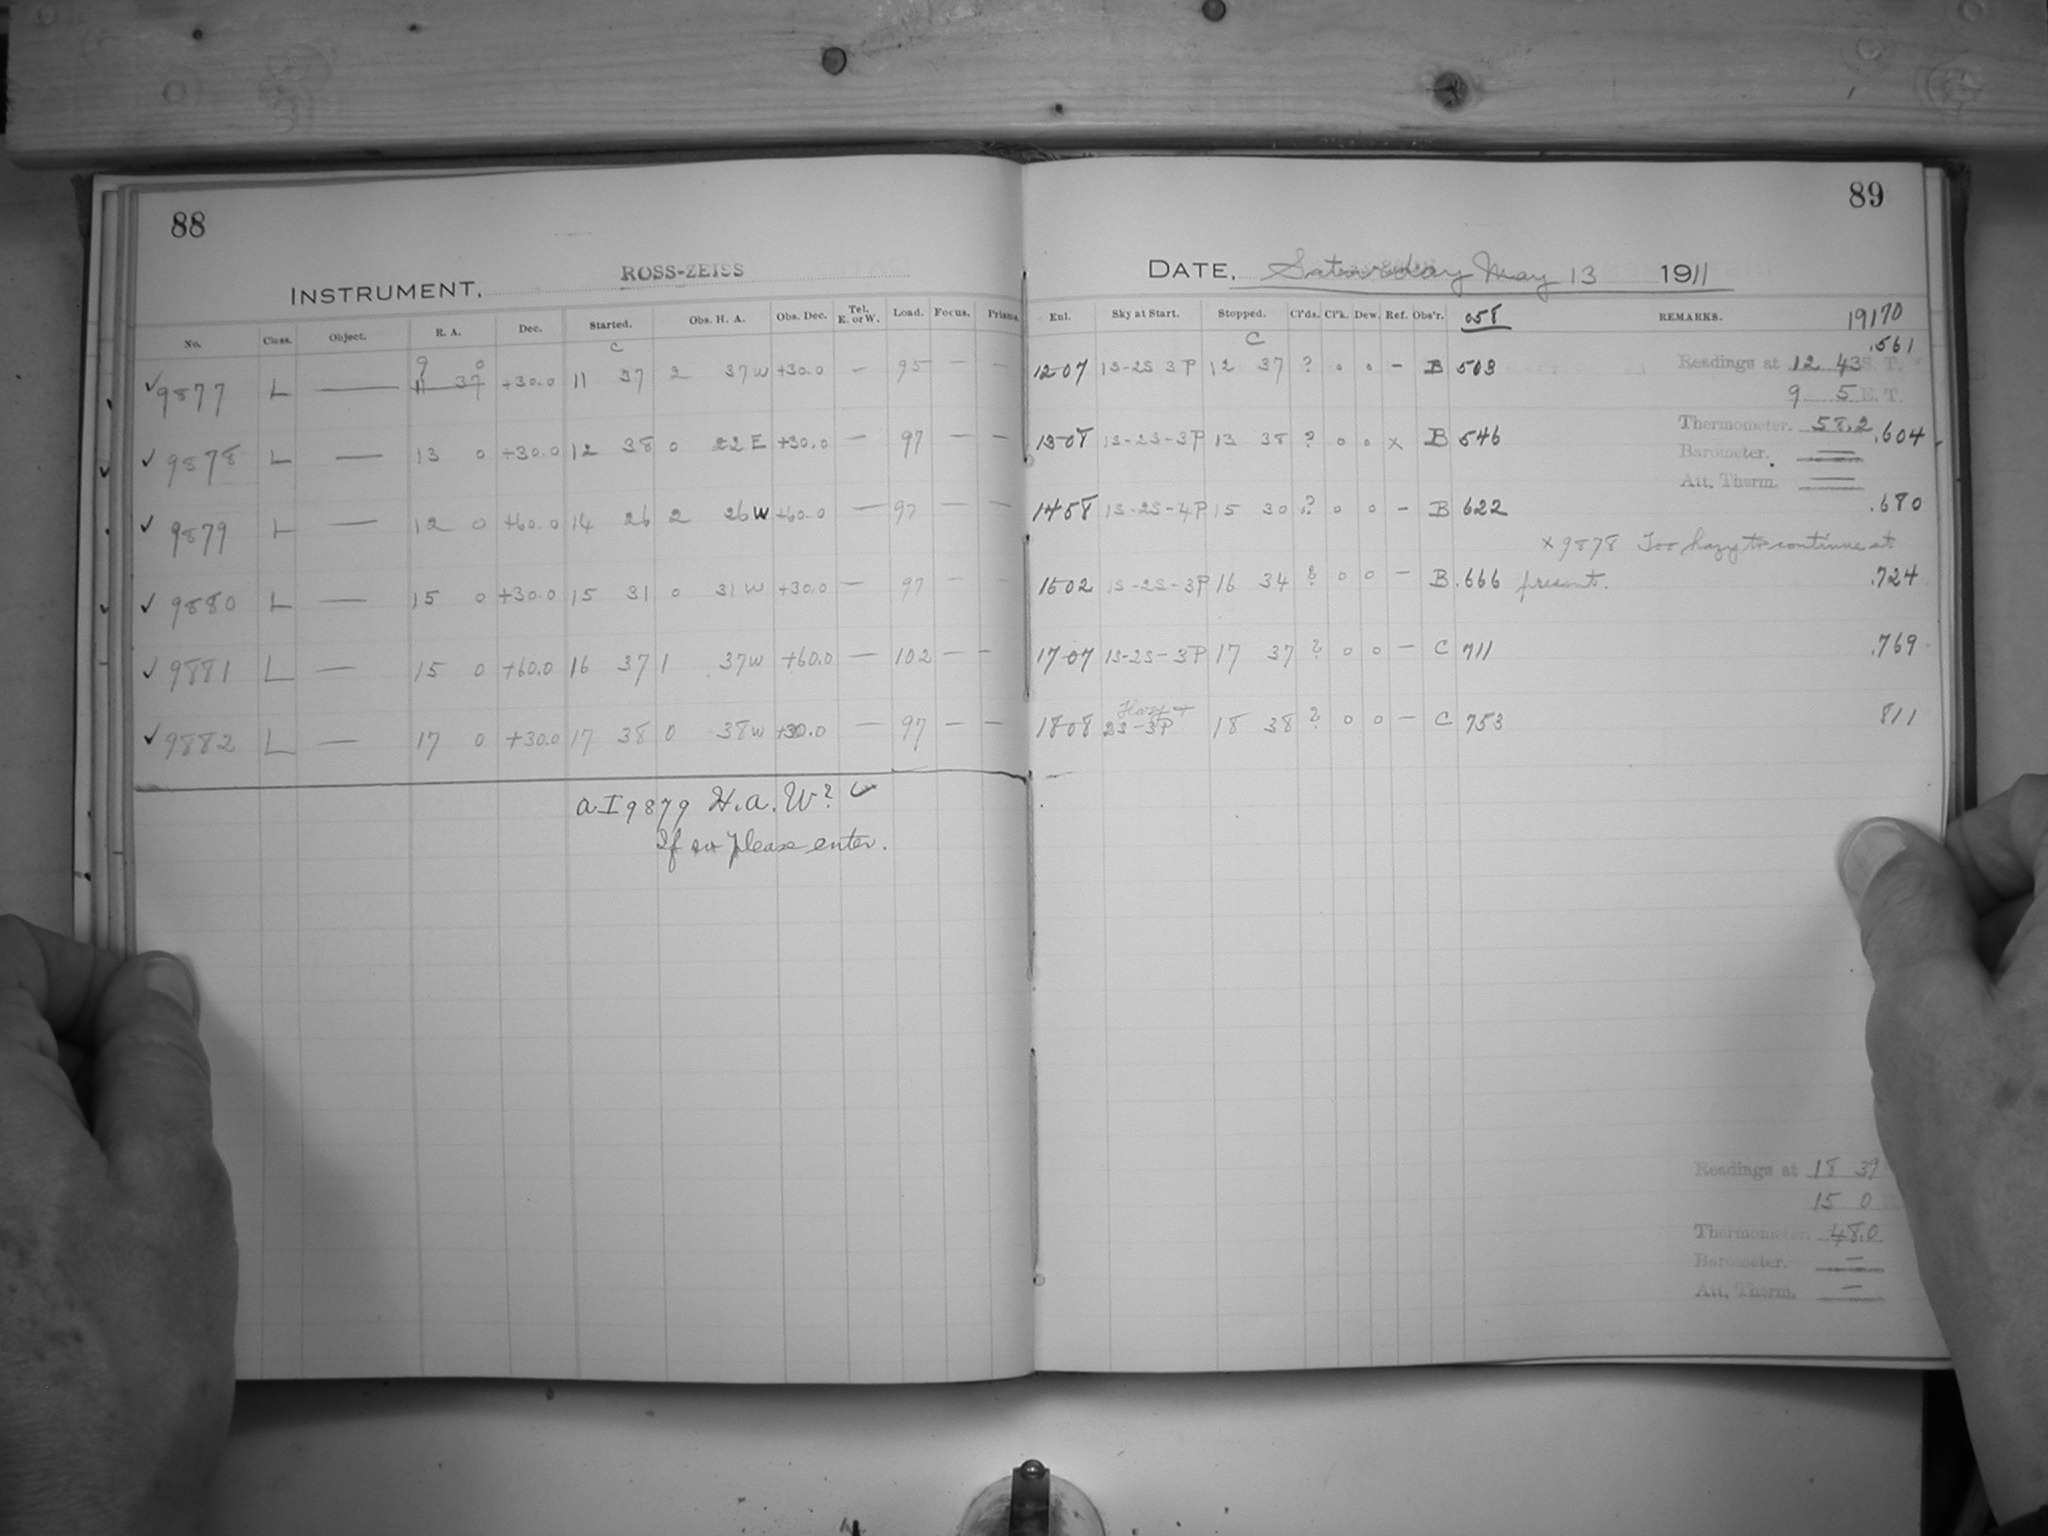 88
INSTRUMENT, ROSS-ZEISS
No. Class. Object. R. A. Dec. Started. Obs. H. A. Obs. Dec. Tel. E. or W. Load. Focus. Prisms.
C
9 0
✓ 9877 L — 11 37 +30.0 11 37 2 37 W +30.0 — 95 — —
✓ 9878 L — 13 0 +30.0 12 38 0 22 E +30.0 — 97 — —
✓ 9879 L — 12 0 +60.0 14 26 2 26 W +60.0 — 97 — —
✓ 9880 L — 15 0 +30.0 15 31 0 31 W +30.0 — 97 — —
✓ 9881 L — 15 0 +60.0 16 37 1 37 W +60.0 — 102 — —
✓ 9882 L — 17 0 +30.0 17 38 0 38 W +30.0 — 97 — —
a I 9879 H.a. W? ✓
If so please enter.
89
DATE, Saturday May 13 1911
Enl. Sky at Start. Stopped. Cl'ds. Cl'k. Dew. Ref. Obs'r. 058 REMARKS. 19170
C
.561
1207 1S-2S 3P 12 37 ? 0 0 — B 503 Readings at 12 43 S. T.
9 5 E. T.
Thermometer. 58.2
1308 1S-2S-3P 13 38 ? 0 0 x B 546 .604
Barometer. —
Att. Therm. —
1458 1S-2S-4P 15 30 ? 0 0 — B 622 .680
x 9878 Too hazy to continue at
present.
1602 1S-2S-3P 16 34 ? 0 0 — B .666 .724
1707 1S-2S-3P 17 37 ? 0 0 — C 711 .769
Hazy +
1808 2S-3P 18 38 ? 0 0 — C 753 811
Readings at 18 39
15 0
Thermometer. 48.0
Barometer. —
Att. Therm. —